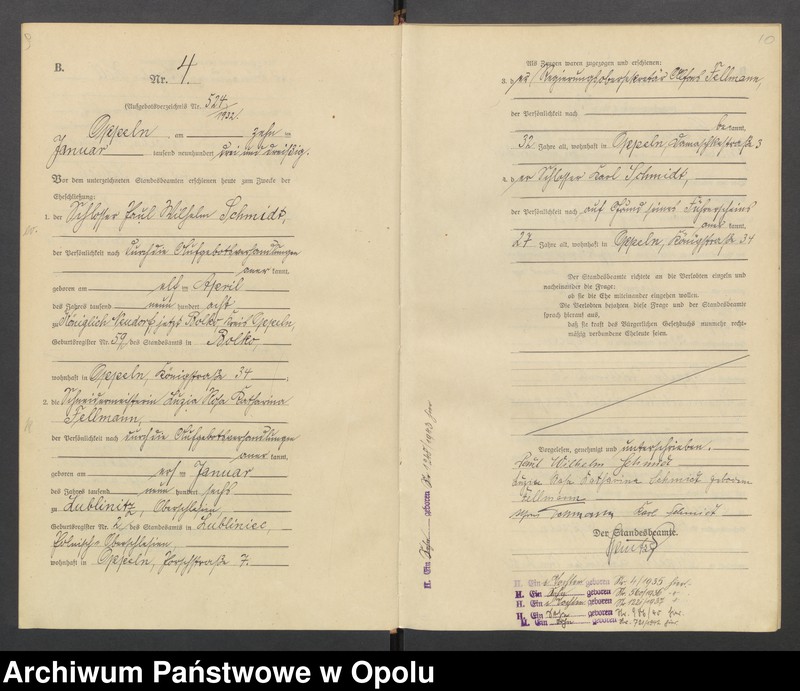 B.
Nr. 4.
(Aufgebotsverzeichnis Nr. 524/1932.
Oppeln, am zehn ten
Januar tausend neunhundert drei und dreißig.
Vor dem unterzeichneten Standesbeamten erschienen heute zum Zwecke der
Eheschließung:
1. der Schlosser Paul Wilhelm Schmidt,
der Persönlichkeit nach durch die Aufgebotsverhandlungen
aner kannt,
geboren am elf ten April
des Jahres tausend neun hundert acht
zu Königlich Neudorf jetzt Bolko, Kreis Oppeln,
Geburtsregister Nr. 59, des Standesamts in Bolko,
wohnhaft in Oppeln, Königstraße 34 ;
2. die Schneidermeisterin Luzia Rosa Katharina
Fellmann,
der Persönlichkeit nach durch die Aufgebotsverhandlungen
aner kannt,
geboren am ers ten Januar
des Jahres tausend neun hundert sechs
zu Lublinitz, Oberschlesien,
Geburtsregister Nr. 2, des Standesamts in Lubliniec,
Polnisch-Oberschlesien,
wohnhaft in Oppeln, 7.
10
Als Zeugen waren zugezogen und erschienen:
3. der Regierungsobersekretär Alfons Fellmann,
der Persönlichkeit nach
be kannt,
32 Jahre alt, wohnhaft in Oppeln, Damaschkestraße 3
4. der Schlosser Karl Schmidt,
der Persönlichkeit nach auf Grund seines Führerscheins
aner kannt,
27 Jahre alt, wohnhaft in Oppeln, Königstraße 34
Der Standesbeamte richtete an die Verlobten einzeln und
nacheinander die Frage:
ob sie die Ehe miteinander eingehen wollen.
Die Verlobten bejahten diese Frage und der Standesbeamte
sprach hierauf aus,
daß sie kraft des Bürgerlichen Gesetzbuchs nunmehr recht-
mäßig verbundene Eheleute seien.
Vorgelesen, genehmigt und unterschrieben.
Paul Wilhelm Schmidt
Luzia Rosa Katharina Schmidt geborene
Fellmann
Alfons Fellmann Karl Schmidt
Der Standesbeamte.
H. Ein Sohn geboren Nr. 1943
H. Ein e Tochter geboren Nr. 4/1935 hier.
H. Ein Sohn geboren Nr. /1936
H. Ein e Tochter geboren Nr. /1937
H. Ein Sohn geboren Nr.
H. Ein Sohn geboren Nr.
Archiwum Państwowe w Opolu